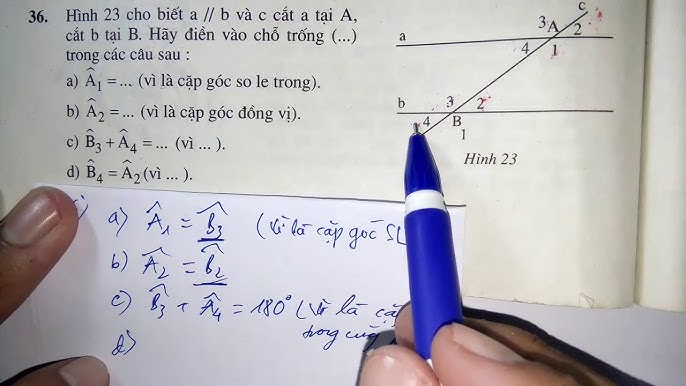 36. Hình 23 cho biết a // b và c cắt a tại A,
cắt b tại B. Hãy điền vào chỗ trống (...)
trong các câu sau :
a) Â₁ = ... (vì là cặp góc so le trong).
b) Â₂ = ... (vì là cặp góc đồng vị).
c) B̂₃ + Â₄ = ... (vì ... ).
d) B̂₄ = Â₂ (vì ... ).
c
3 A 2
a
4 1
b
3 2
4 B
1
Hình 23
a) Â₁ = B̂₃ (vì là cặp góc SL
b) Â₂ = B̂₂
c) B̂₃ + Â₄ = 180° (vì là cặ
trong cùng
d)